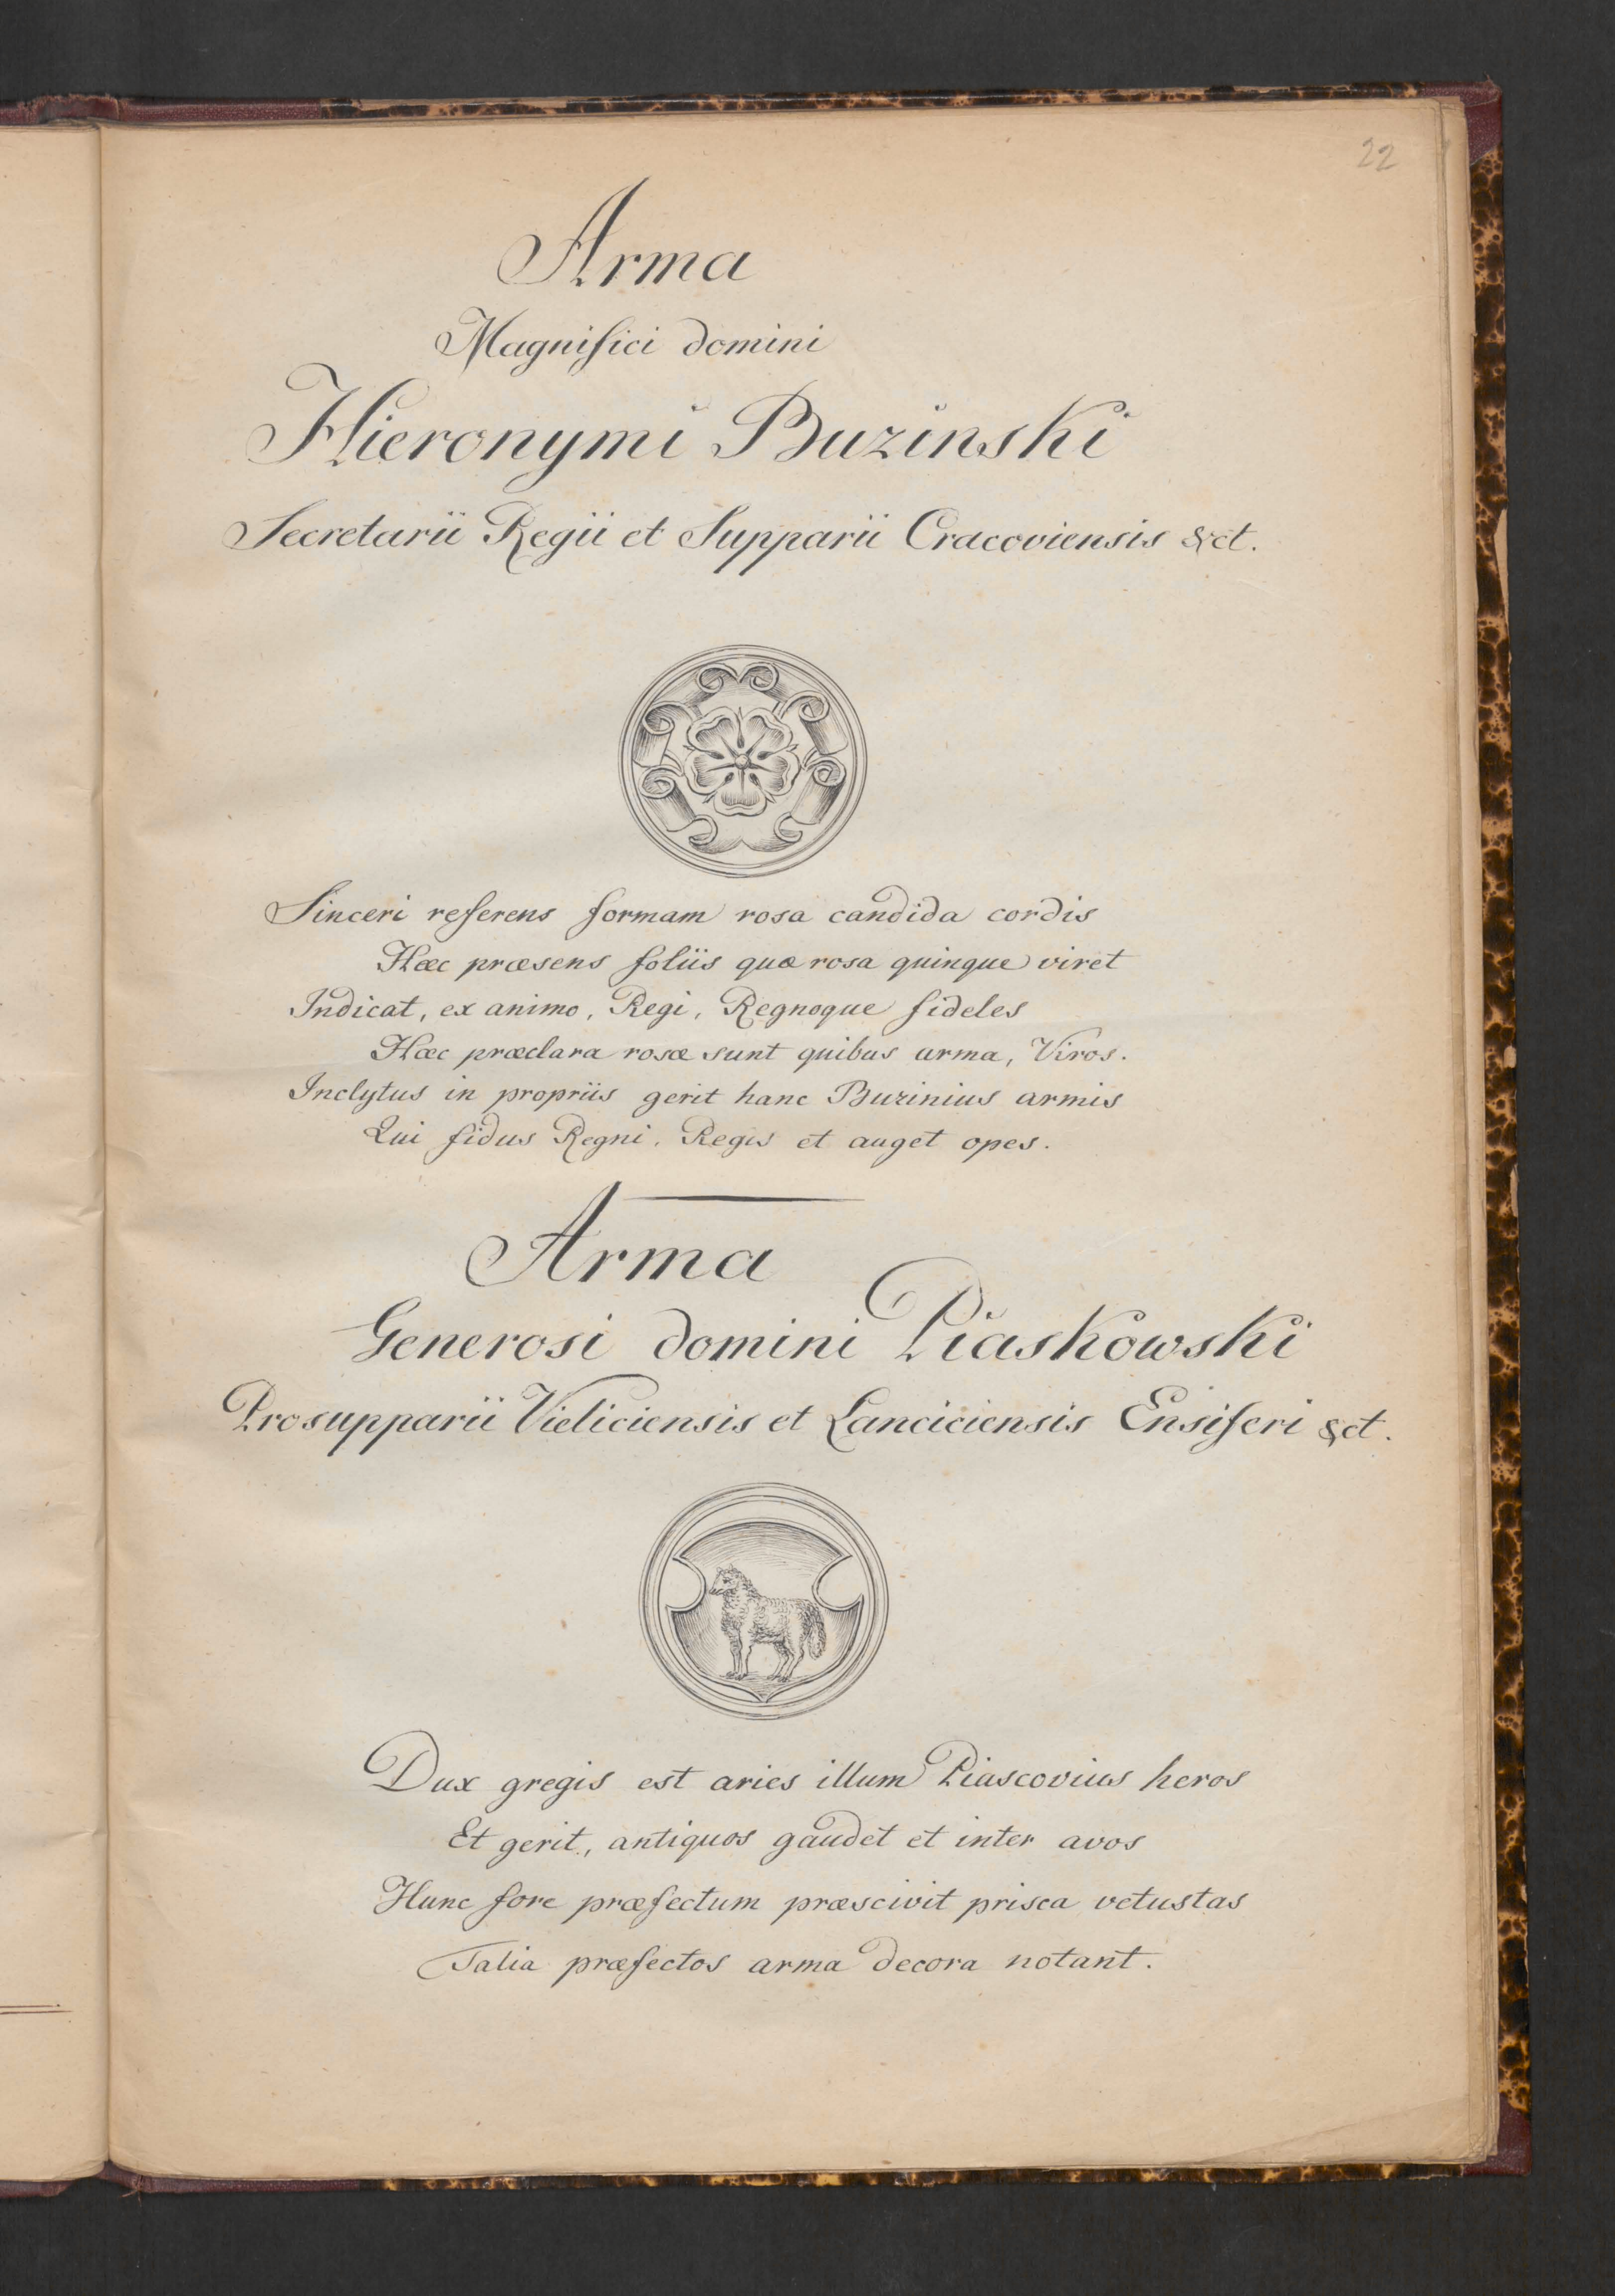 22
Arma
Magnifici domini
Hieronymi Buzinski
Secretarii Regii et Supparii Cracoviensis &ct.
Sinceri referens formam rosa candida cordis
Hæc præsens foliis quæ rosa quinque viret
Indicat, ex animo, Regi, Regnoque fideles
Hæc præclara rosæ sunt quibus arma, Viros.
Inclytus in propriis gerit hanc Buzinius armis
Qui fidus Regni, Regis et auget opes.
Arma
Generosi domini Piaskowski
Prosupparii Vieliciensis et Lanciciensis Ensiferi &ct.
Dux gregis est aries illum Piascovius heros
Et gerit, antiquos gaudet et inter avos
Hunc fore præfectum præscivit prisca vetustas
Talia præfectos arma decora notant.